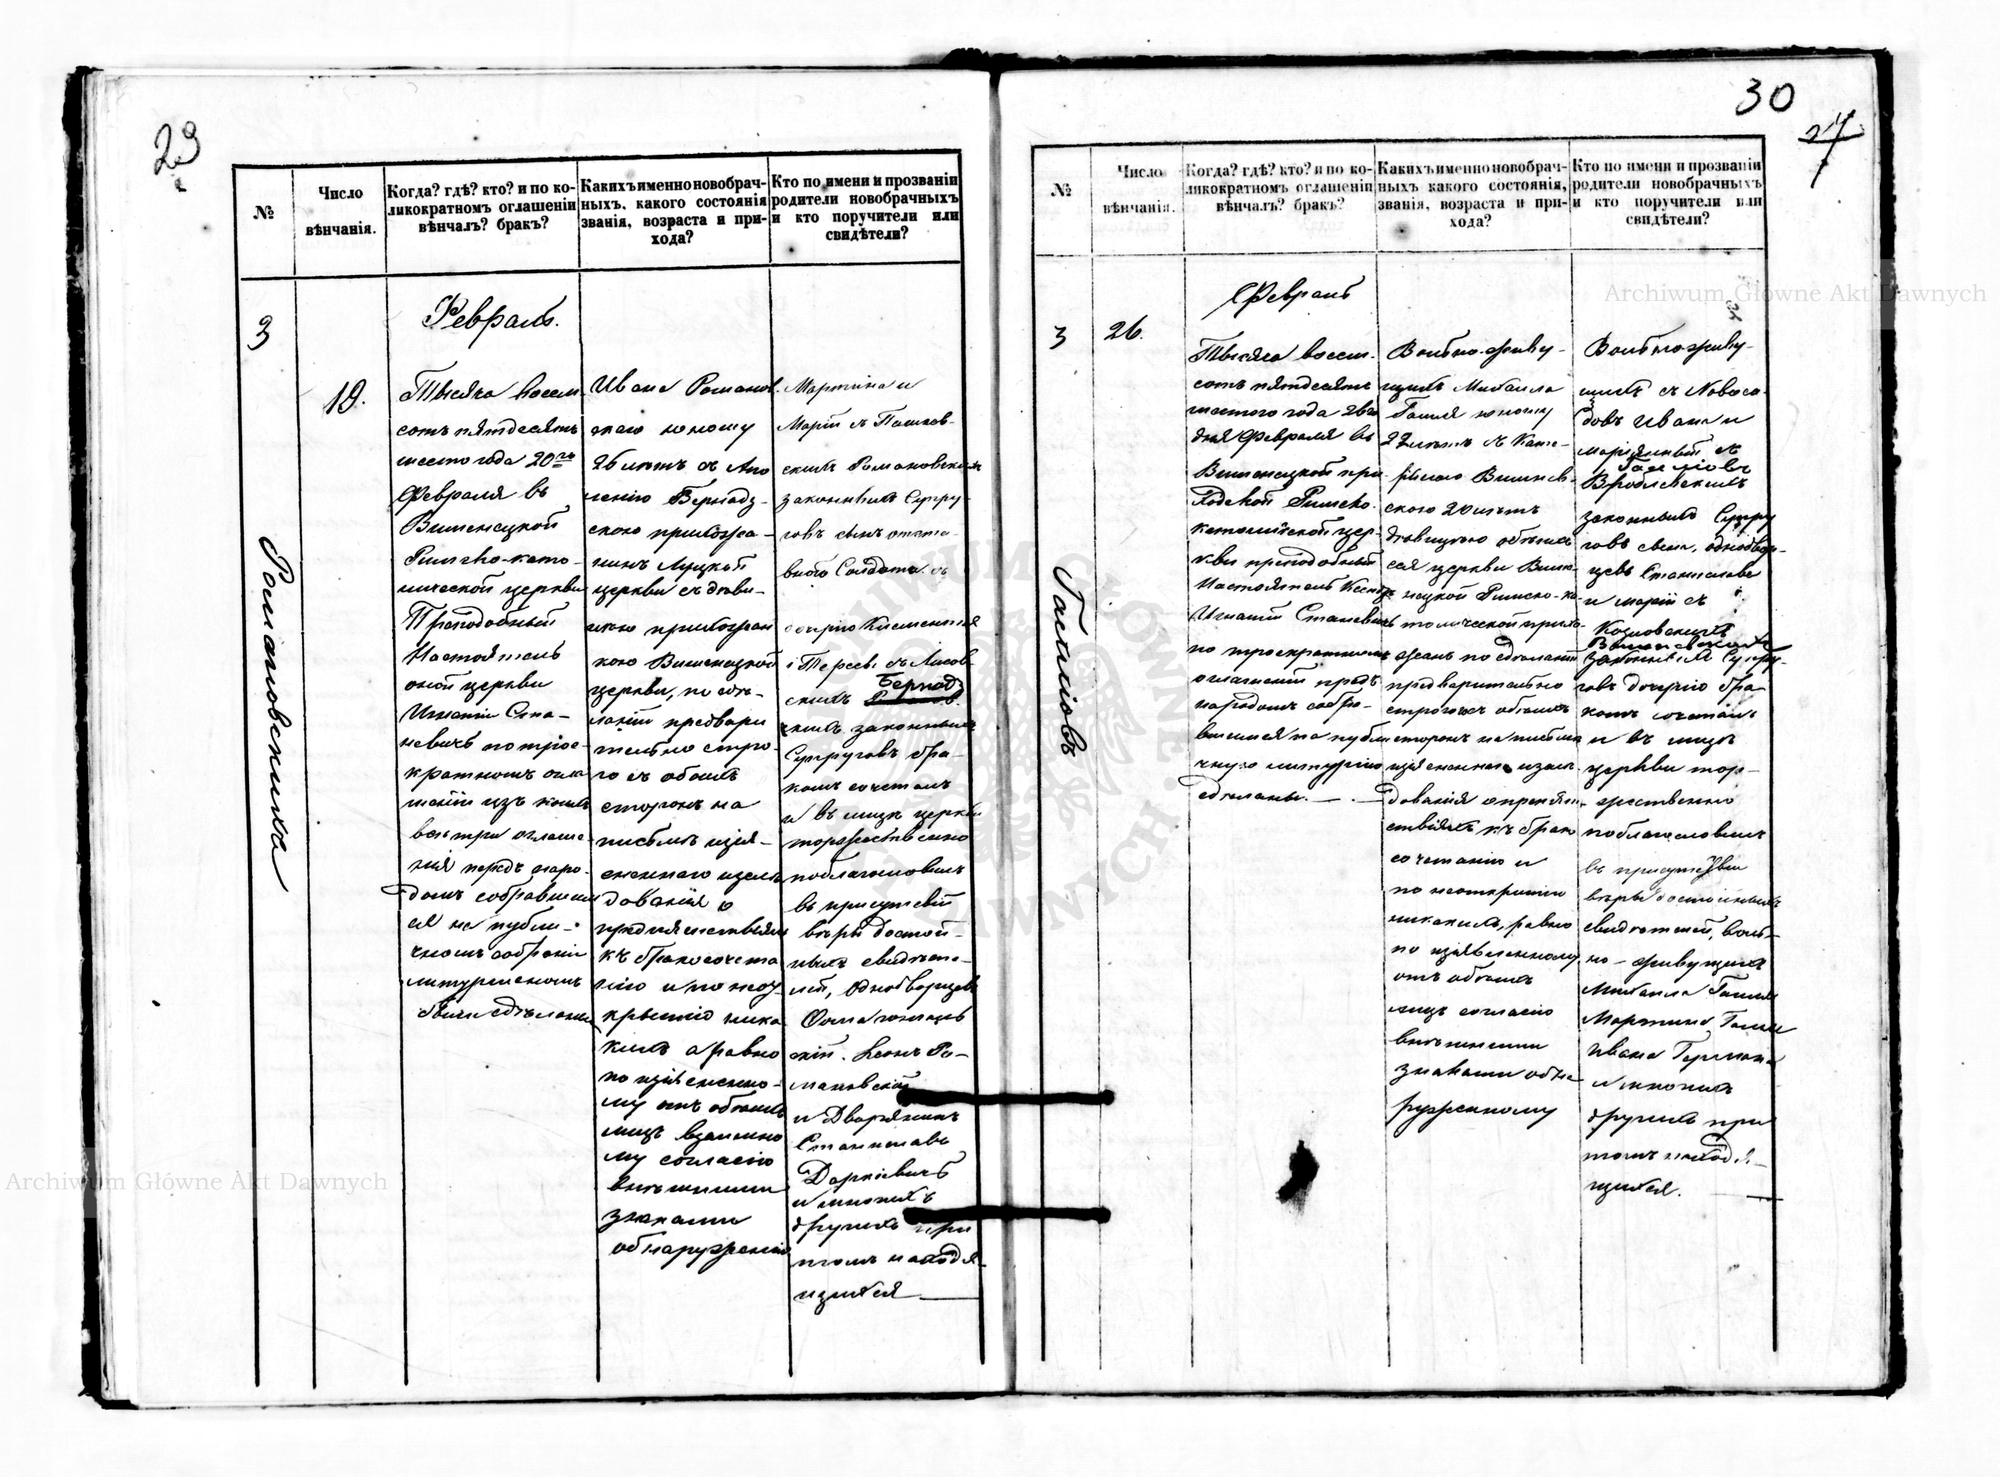 23
№
Число
вѣнчанія.
Когда? гдѣ? кто? и по ко-
ликократномъ оглашеніи
вѣнчалъ? бракъ?
Какихъ именно новобрач-
ныхъ, какого состоянія
званія, возраста и при-
хода?
Кто по имени и прозванію
родители новобрачныхъ
и кто поручители или
свидѣтели?
3
19.
Романовскиха
Февраль.
Тысяча восем
сотъ пятдесятъ
шесто года 20го
Февраля въ
Вишенецкой
Римско-като-
лической церкви
Преподобный
Настоятель
оной церкви
Игнатій Ста-
невичь по трое-
кратномъ огла
шеніи изъ коихъ
всѣ три оглаше
нія передъ наро-
домъ собравшим
ся на публи-
чномъ собраніи
литургисномъ
были сдѣланы
Ивана Романов
скаго юношу
26 лѣтъ съ Апо
лонію Бернадз-
скою прихожа-
нинъ Луцкой
церкви съ дѣви-
цею прихожан
кою Вишенецкой
церкви, по сдѣ-
ланіи предвари
тельно стро-
го съ обоихъ
сторонъ на
письмѣ изъя-
сненнаго изслѣ
дованія о
препятствіяхъ
къ бракосочета
нію и по неот
крытію ника
кихъ а равно
по изъясненно-
му отъ обоихъ
лицъ взаимно
му согласію
внѣшними
знаками
обнаруженію
Мартина и
Маріи съ Пашков-
скихъ Романовскихъ
законныхъ Супру-
говъ сынъ отста-
внаго Солдата съ
дочерію Климентія
і Тересы съ Лисов
скихъ Бернадз
кихъ законныхъ
Супруговъ бра-
комъ сочеталъ
и въ лицѣ церкви
торжественно
поблагословилъ
въ присутствіи
вѣры достой-
ныхъ свидѣте-
лей, Однодворцевъ
скій. Леонъ Ро-
мановскій
и Дворянинъ
Станиславъ
Даркіевичъ
и многихъ
другихъ при
томъ находя-
щихся
30
27
№
Число
вѣнчанія.
Когда? гдѣ? кто? и по ко-
ликократномъ оглашеніи
вѣнчалъ? бракъ?
Какихъ именно новобрач-
ныхъ какого состоянія,
званія, возраста и при-
хода?
Кто по имени и прозванію
родители новобрачныхъ
и кто поручители или
свидѣтели?
3
26.
Гасліовъ
Февраль
Тысяча восем-
сотъ пятдесятъ
шестого года 26го
дня Февраля въ
Вишенецкой при-
ходской Римско-
католической цер-
кви преподобный
Настоятель Ксендзъ
Игнатій Станевичъ
по троекратномъ
оглашеніи предъ
народомъ собра-
вшимся на публи
чную литургію
сдѣланы.
Вольно-живу-
щихъ Михаила
юношу
22 лѣтъ съ Кате-
риною Вишнев-
скою 20 лѣтъ
дѣвицею обоихъ
сея церкви Више-
нецкой Римско-ка-
толической прихо-
жанъ по сдѣланіи
предварительно
строгого съ обоихъ
сторонъ на письмѣ
изъясненнаго изслѣ
дованія о препят
ствіяхъ къ брако
сочетанію и
по неоткрытію
никакихъ, равно
по изъявленному
отъ обоихъ
лицъ согласію
внѣшними
знаками обна
руженному
Вольноживу-
щихъ съ Новоса-
довъ Ивана и
Маріянны съ
Вроблевскихъ
законныхъ Супру
говъ сына, однодвор-
цевъ Станислава
и Маріи съ
Козловскихъ
Вишневскихъ
законныхъ Супру-
говъ дочерію бра
комъ сочеталъ
и въ лицѣ
церкви тор-
жественно
поблагословилъ
въ присутствіи
вѣры достойныхъ
свидѣтелей, воль-
но-живущихъ
Михаила
Мартина
Ивана Германа
и многихъ
другихъ при
томъ находя-
щихся.
Archiwum Główne Akt Dawnych
Archiwum Główne Akt Dawnych